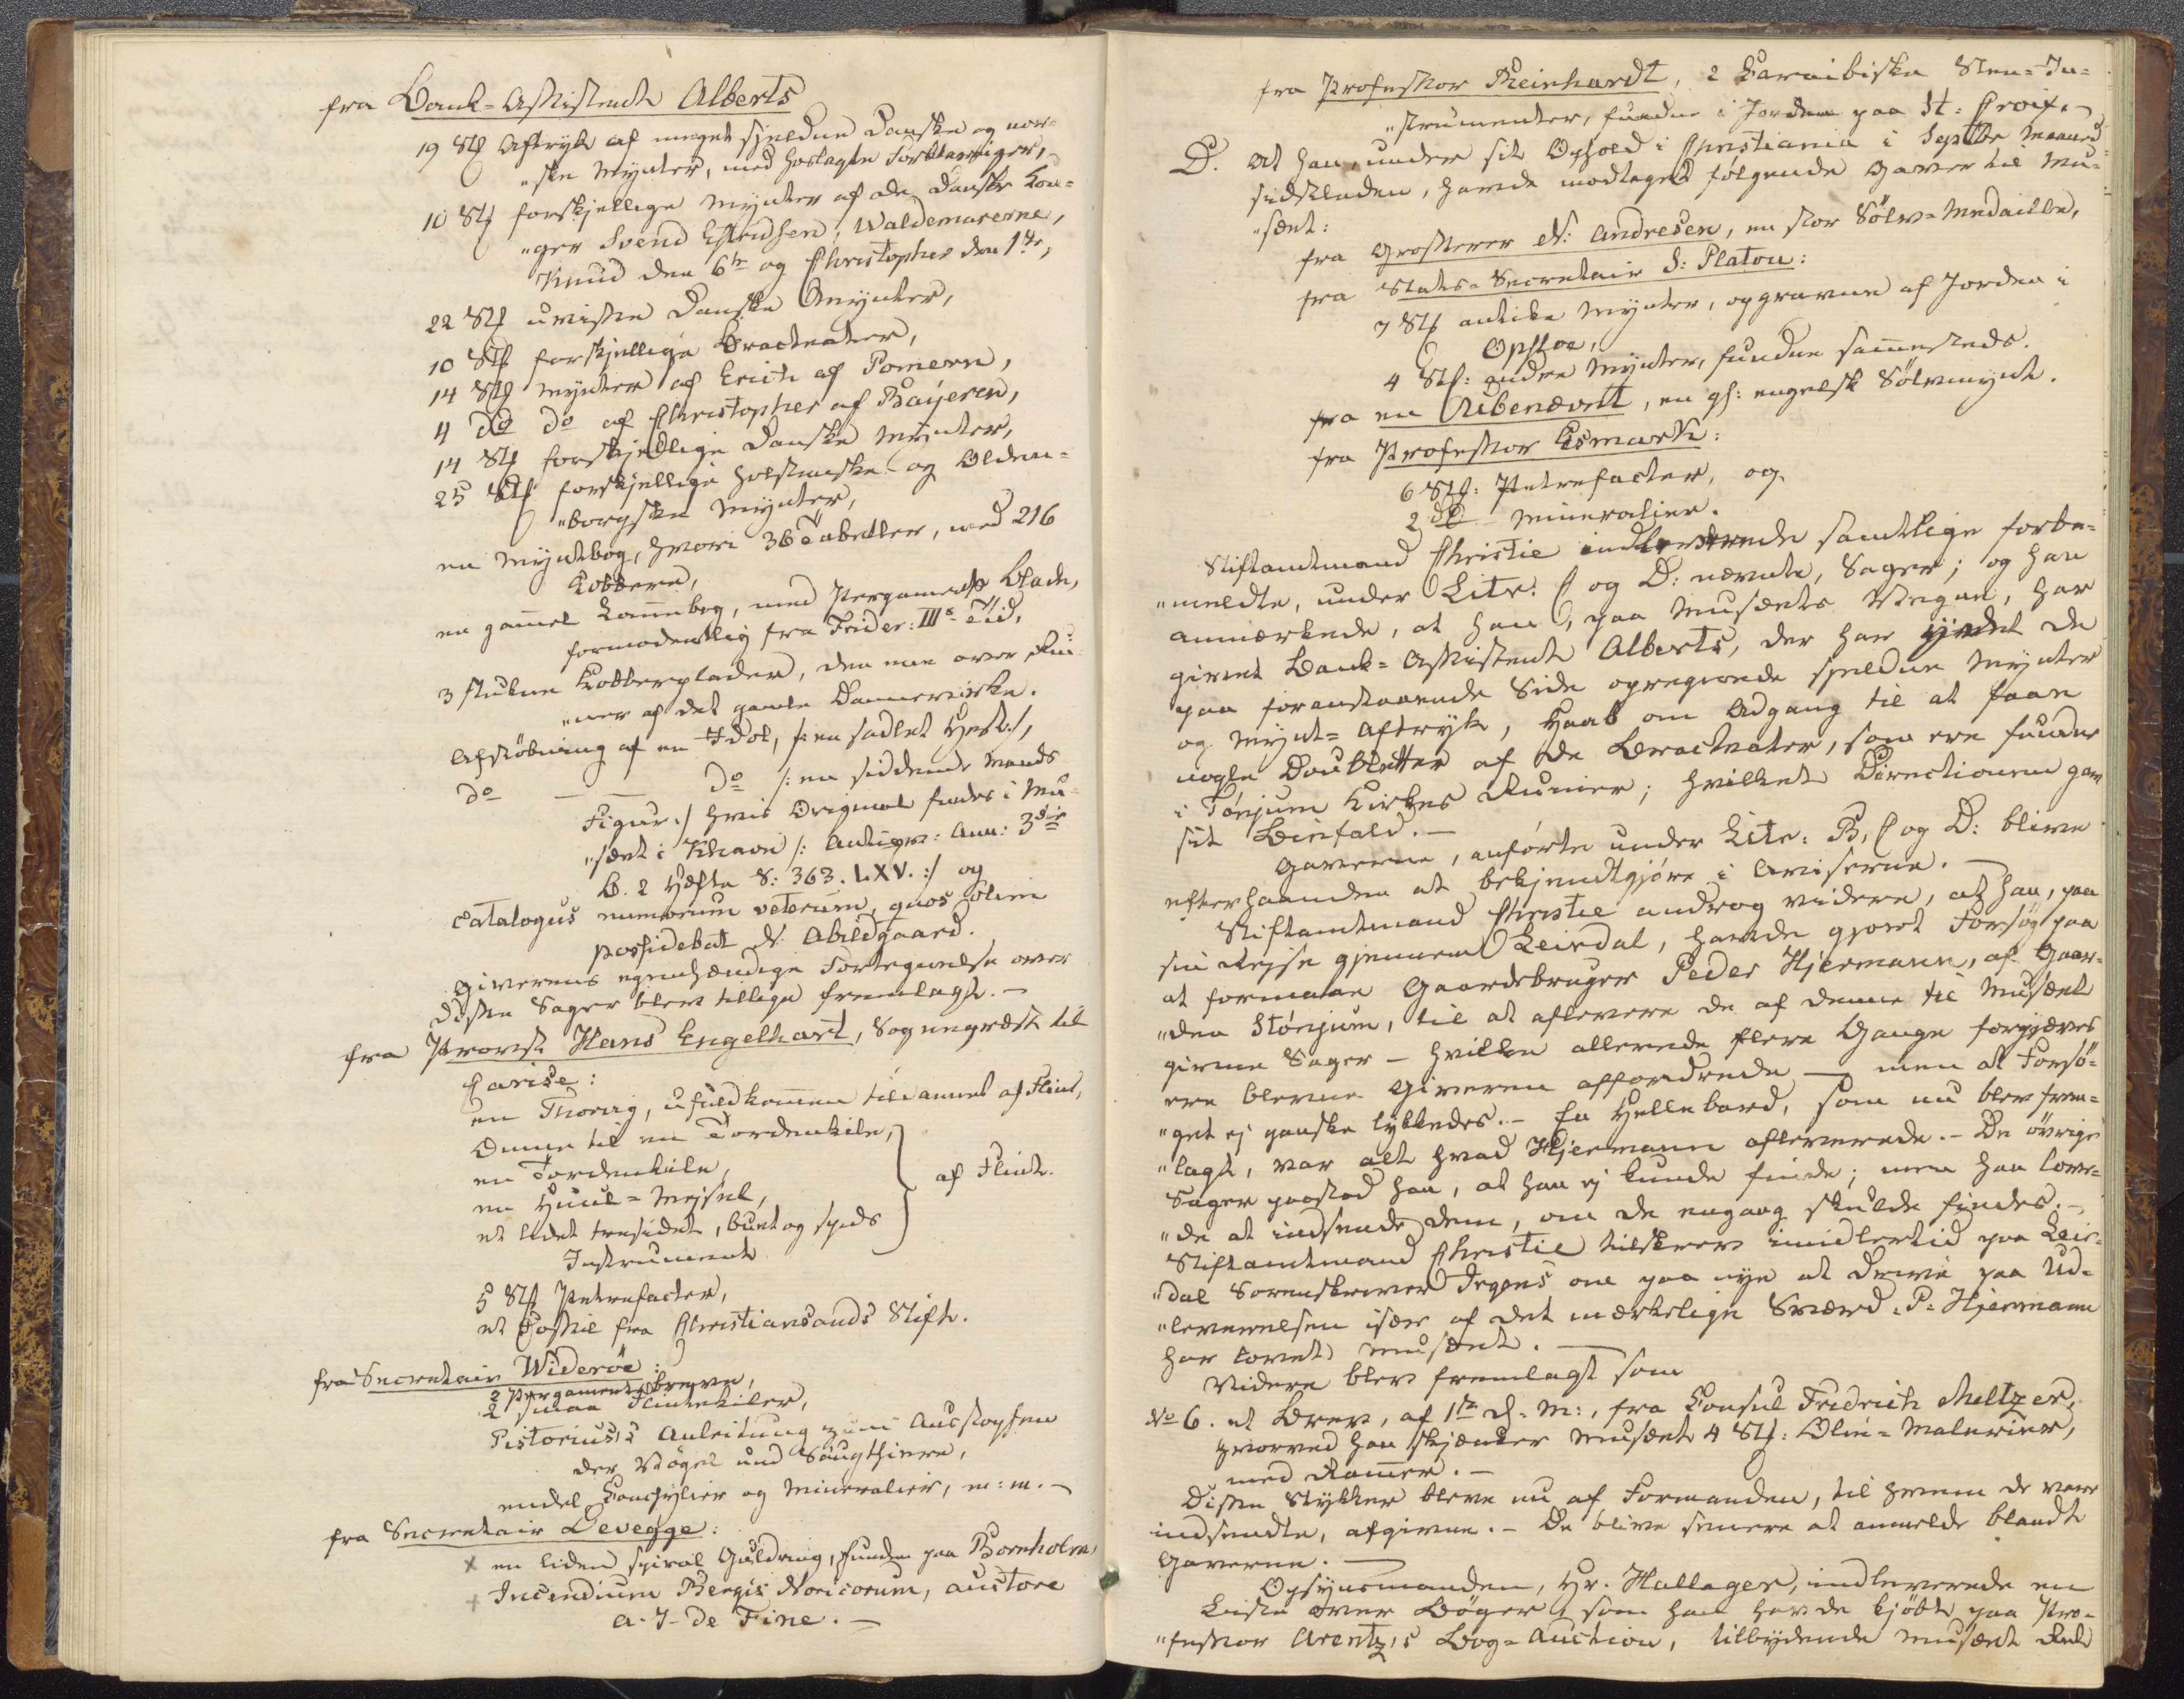 fra Bank-Assistent Alberts
19 Stk Aftryk af meget sjeldne Danske og nor-
"ske Mynter, med hoslagte Forklaringer,
10 Stk forskjellige Mynter af de Danske Kon-
"ger Svend Estridsen, Waldemarerne,
Knud den 6te og Christopher den 1te,
22 Stk uvisse Danske Mynter,
10 Stk forskjellige Bracteater,
14 Stk Mynter af Erich af Pomern,
4 do do af Christopher af Bayeren,
14 Stk forskjellige Danske Mynter,
25 Stk forskjellige holsteenske og Olden-
"borgske Mynter,
en Myntbog, hvori 36 Tabeller, med 216
Kobbere,
en gammel Lommebog, med Pergaments Blade,
formodentlig fra Frider: IIIs Tid,
3 stukne Kobberplader, den ene over Rui-
"ner af det gamle Dannevirke.
Afstöbning af en Idol, /: en sadlet Hest :/,
do — — do /: en siddende Mands
Figur :/ hvis Original findes i Mu-
"sæet i Khavn /: Antiqv: Ann: 3die
B. 2 Hefte S: 363. LXV. :/ og
Catalogus numorum veterum, quos olim
possidebat N. Abildgaard.
Giverens egenhændige Fortegnelse over
disse Sager blev tillige fremlagt. —
fra Provst Hans Engelhart, Sognepræst til
Carise:
en Thorvig, ufuldkommen tildannet af Flint,
Emne til en Tordenkile,
en Tordenkile,
en Huul-Mejsel,
et lidet tresidet, buet og spids
Instrument
af Flint.
5 Stk Petrefacter,
et Fossil fra Christiansands Stift.
fra Secretair Wideröe:
2 Pergamentsbreve,
2 smaa Flintekiler,
Pistorius's Anleitung zum Ausstopfen
der Vögel und Säugthiere,
endel Conchylier og Mineralier, m: m. —
fra Secretair Levegge:
x en liden spiral Guldring, funden paa Bornholm,
x Incendium Bergis Noricorum, auctore
a. J. de Fine. —
fra Professor Reinhardt, 2 Caraibiske Sten-In-
"strumenter, fundne i Jorden paa St: Croix. —
D. At han, under sit Ophold i Christiania i Septbr Maaned
sidstleden, havde modtaget følgende Gaver til Mu-
"sæet:
fra Grosserer N: Andresen, en stor Sölv-Medaille,
fra Stats-Secretair S: Platou:
7 Stk antike Mynter, opgravne af Jorden i
Opsloe,
4 Stk: andre Mynter, fundne sammesteds.
fra en Ubenævnt, en gl: engelsk Sölvmynt.
fra Professor Esmark:
6 Stk: Petrefacter, og
2 do Mineralier.
Stiftamtmand Christie indleverede samtlige forbe-
"meldte, under Litr: C og D: nævnte, Sager; og han
anmærkede, at han, paa Musæets Vegne, har
givet Bank-Assistent Alberts, der har ydet de
paa foranstaaende Side opregnede sjeldne Mynter
og Mynt-Aftryk, Haab om Adgang til at faae
nogle Doubletter af de Bracteater, som ere fundne
i Tönjum Kirkes Ruiner; hvilket Directionen gav
sit Bifald. —
Gaverne, anförte under Litr: B, C og D: blive
efterhaanden at bekjendtgjöre i Aviserne. —
Stiftamtmand Christie androg videre, at han, paa
sin Reise gjennem Leirdal, havde gjort Forsög paa
at formaae Gaardbruger Peder Hjermann, af Gaar-
"den Stönjum, til at aflevere de af denne til Musæet
givne Sager — hvilke allerede flere Gange forgjæves
ere blevne Giveren affordrede — men at Forsö-
"get ej ganske lykkedes. — En Hellebard, som nu blev frem-
"lagt, var alt hvad Hjermann afleverede. — De övrige
Sager paastod han, at han ej kunde finde; men han love-
"de at indsende dem, om de engang skulde findes. —
Stiftamtmand Christie tilskrev imidlertid paa Leir-
"dal Sorenskriver Irgens om paa nye at drive paa Ud-
"leverelsen især af det mærkelige Sværd, P. Hjermann
har lovet Musæet. —
Videre blev fremlagt som
No 6. et Brev, af 1te d. M:, fra Consul Fredrich Meltzer,
hvorved han skjænker Musæet 4 Stk: Olie-Malerier,
med Rammer. —
Disse Stykker bleve nu af Formanden, til hvem de vare
indsendte, afgivne. — De blive senere at anmelde blandt
Gaverne. —
Opsynsmanden, Hr. Hallager, indleverede en
Liste over Böger, som han havde kjöbt paa Pro-
"fessor Arentz's Bog-Auction, tilbydende Musæet dem